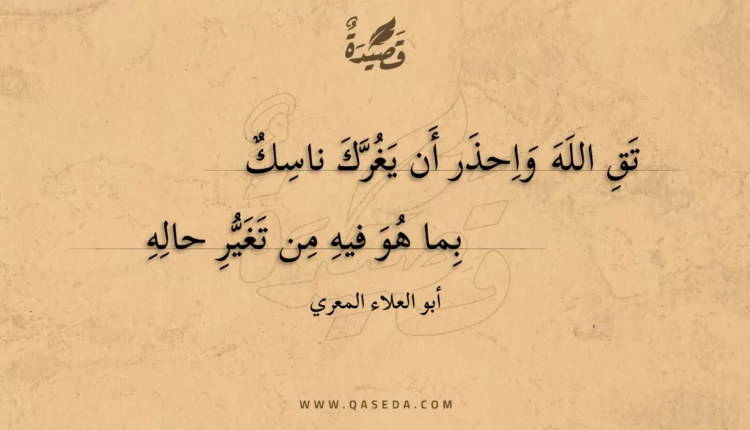 قَصِيْدَةٌ
تَقِ اللَهَ وَاِحذَر أَن يَغُرَّكَ ناسِكٌ
بِما هُوَ فيهِ مِن تَغَيُّرِ حالِهِ
أبو العلاء المعري
WWW.QASEDA.COM